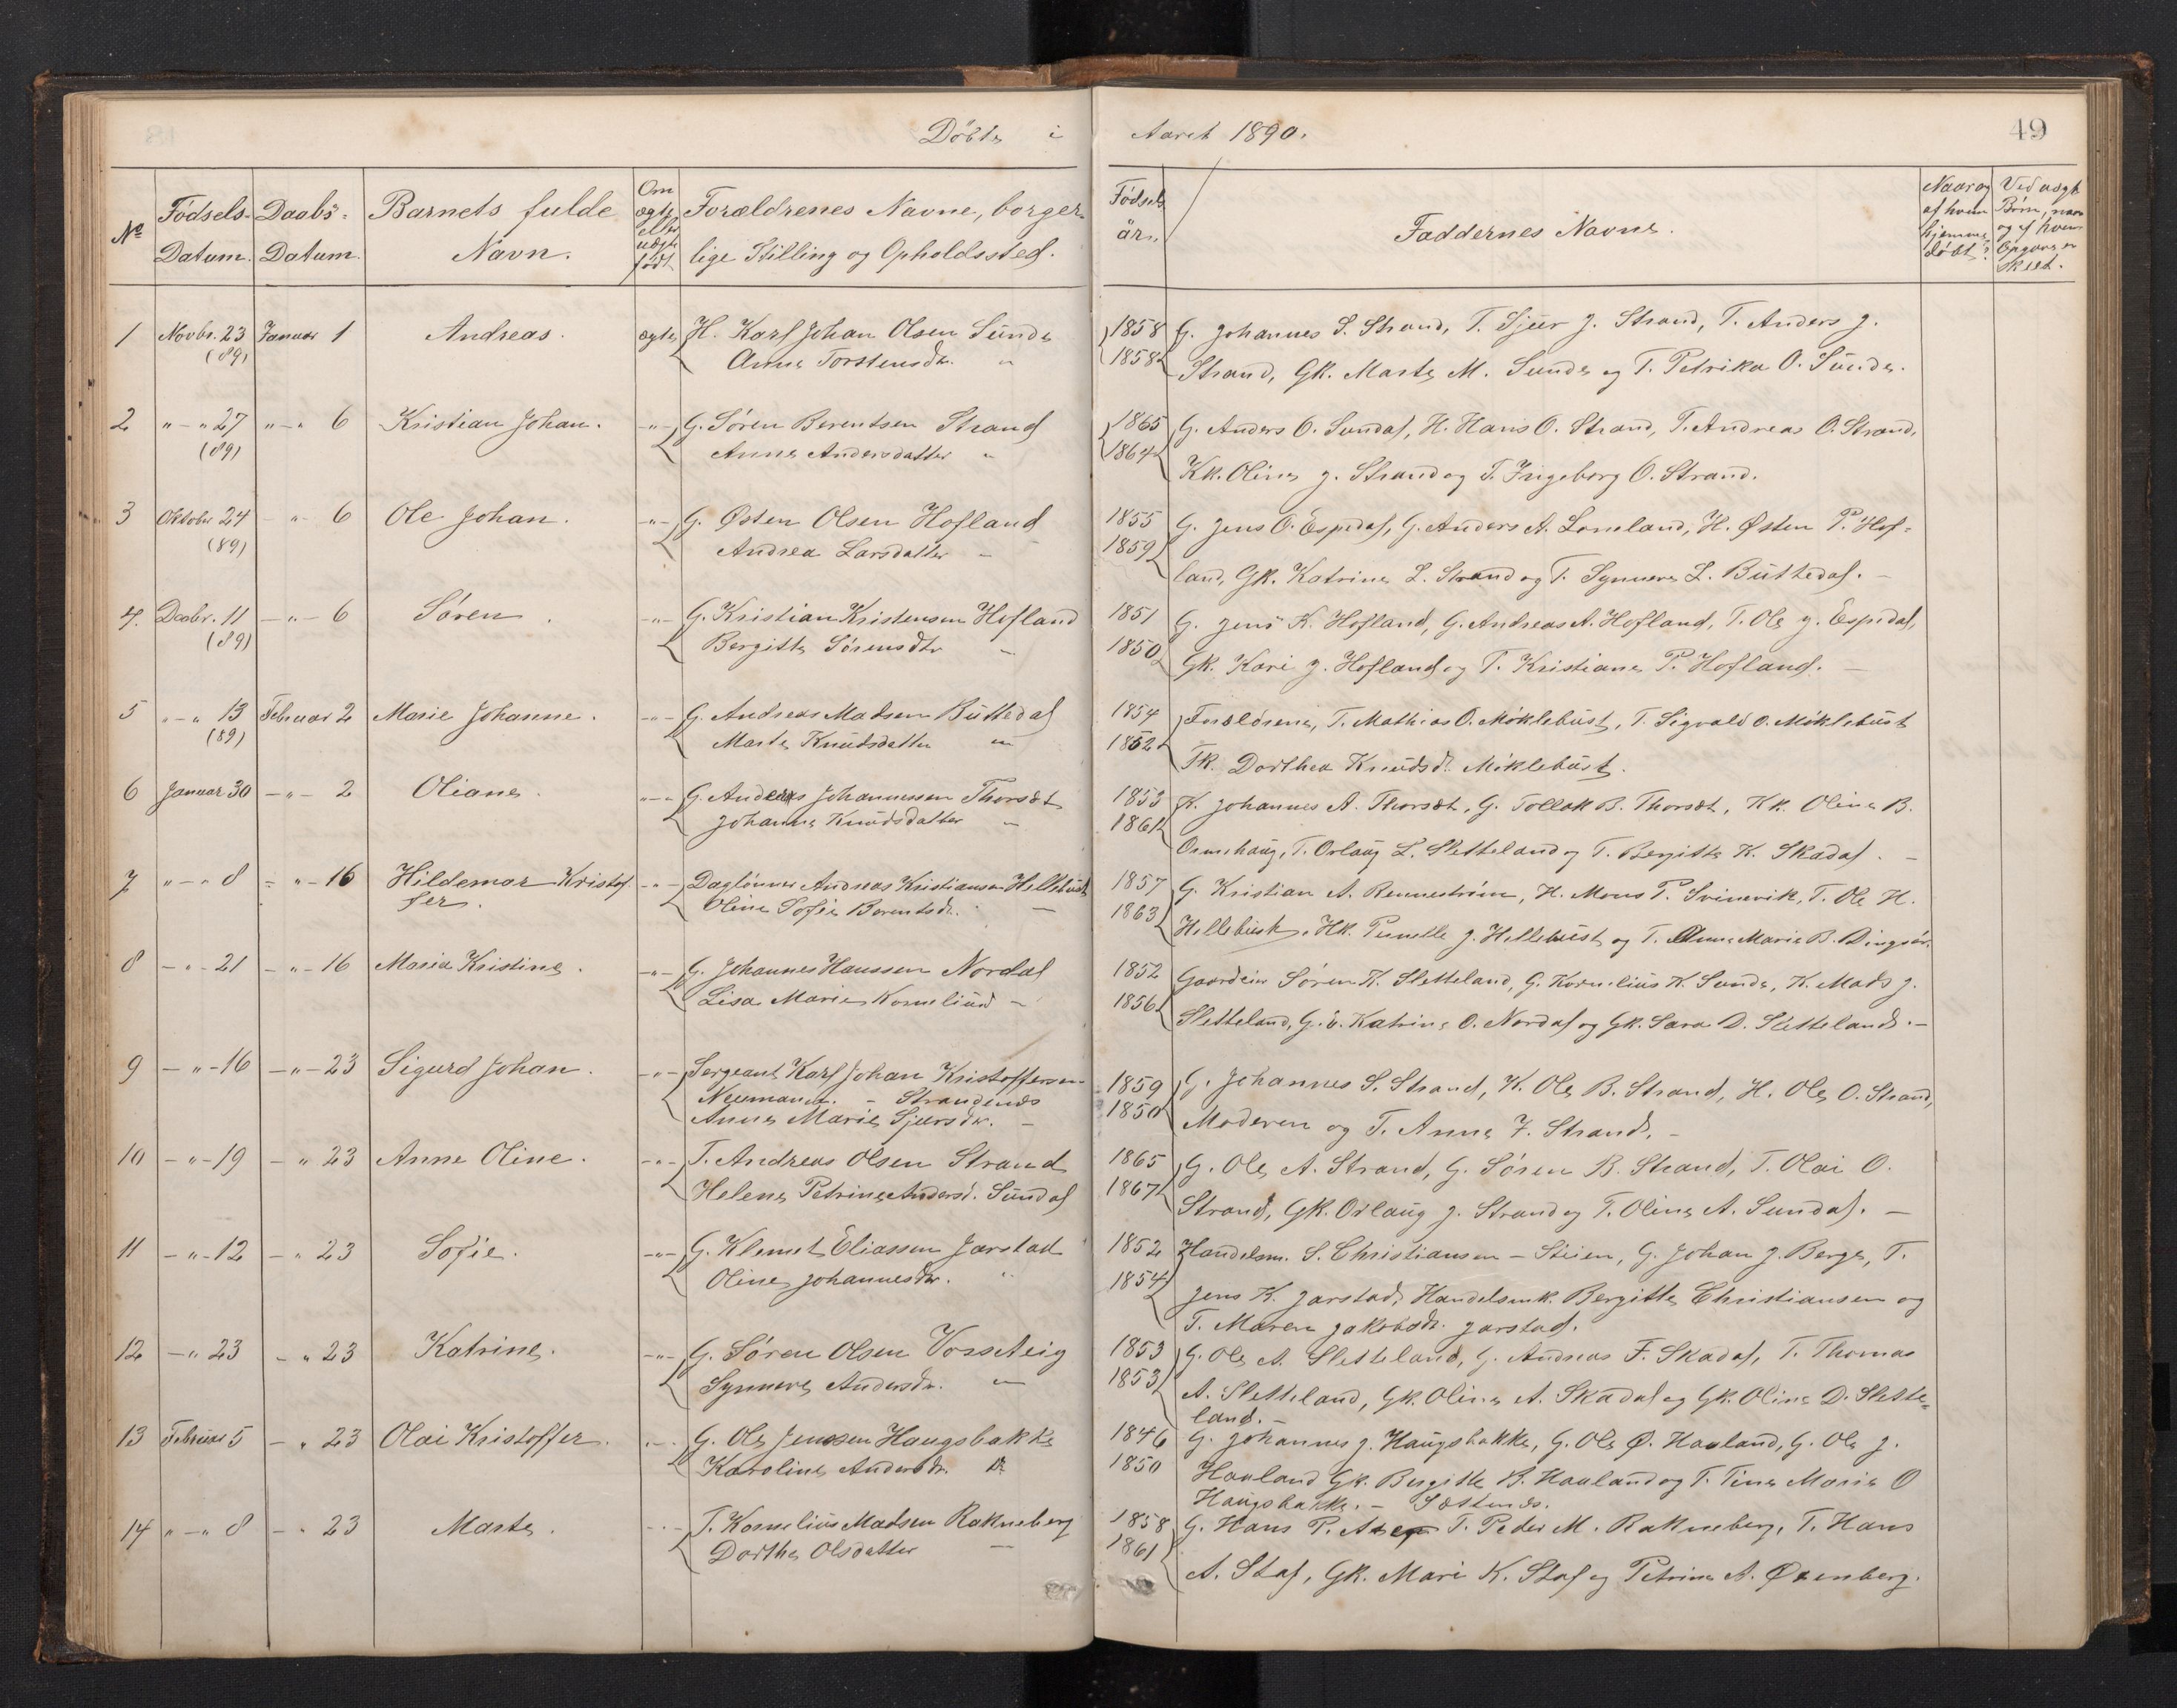 Döbte i Aaret 1890. 49
No Födsels-Datum. Daabs-Datum. Barnets fulde Navn. Om ægte eller uægte født Forældrenes Navne, borgerlige Stilling og Opholdssted. Födsels år. Faddernes Navne. Naar og af hvem hjemmedöbt? Ved uægte Börn, naar og af hvem Opgave er skeet.
1 Novbr. 23 Januar 1 Andreas. ægte H. Karl Johan Olsen Sunde 1858 G. Johannes S. Strand, T. Sjur J. Strand, T. Anders J.
(89) Anne Torstensdtr. " 1858 Strand, Gk. Marte M. Sunde og T. Petrika O. Sunde.
2 "-" 27 "-" 6 Kristian Johan. -"- G. Sören Berentsen Strand 1865 G. Anders O. Sundal, H. Hans O. Strand, T. Andreas O. Strand,
(89) Anne Andersdatter " 1864 Kk. Oline J. Strand og T. Ingeborg O. Strand.
3 Oktober 24 -"- 6 Ole Johan. -"- G. Østen Olsen Hofland 1855 G. Jens O. Espedal, G. Anders A. Loneland, H. Østen P. Hof-
(89) Andrea Larsdatter - 1859 land, Gk. Katrine L. Strand og T. Synneve L. Buttedal. -
4. Decbr. 11 -"- 6 Sören. -"- G. Kristian Kristensen Hofland 1851 G. Jens K. Hofland, G. Andreas A. Hofland, T. Ole J. Espedal,
(89) Bergitte Sörensdtr " 1850 Gk. Kari J. Hofland og T. Kristiane P. Hofland. -
5 "-" 13 Februar 2 Marie Johanne. -"- G. Andreas Madsen Buttedal 1854 Forældrene, T. Mathias O. Möklebust, T. Sigvald O. Möklebust
(89) Marte Knudsdatter " 1852 Tk. Dorthea Knudsd. Möklebust.
6 Januar 30 -"- 2 Oliane. "-" G. Andreas Johannessen Thorsæt 1853 K. Johannes A. Thorsæt, G. Tollak B. Thorsæt, Kk. Oline B.
Johanne Knudsdatter " 1861 Ormehaug, T. Orlaug L. Sletteland og T. Bergitte K. Skadal. -
7 "-" 8 -"- 16 Hildemar Kristof- -"- Daglönner Andreas Kristiansen Hellebust 1857 G. Kristian A. Renneström, H. Mons P. Svinevik, T. Ole H.
fer. Oline Sofie Berentsd. - 1863 Hellebust, Hk. Pernelle J. Hellebust og T. Anne Marie B. Dingsör.
8 -"- 21 -"- 16 Maria Kristine. -"- G. Johannes Hanssen Nordal 1852 Gaardeier Sören K. Sletteland, G. Kornelius K. Sunde, K. Mads J.
Lisa Marie Korneliusd - 1856 Sletteland, Katrine O. Nordal og Gk. Sara D. Sletteland. -
9 -"- 16 -"- 23 Sigurd Johan. -"- Sergeant Karl Johan Kristoffersen 1859 G. Johannes S. Strand, K. Ole B. Strand, H. Ole O. Strand,
Neumann. - Strandenæs 1850 Moderen og T. Anne J. Strand. -
Anne Marie Sjursdtr. -
10 -"- 19 -" 23 Anne Oline. -"- T. Andreas Olsen Strand 1865 G. Ole A. Strand, G. Sören B. Strand, T. Olai O.
Helene Petrine Andersd. Sundal 1867 Strand, Gk. Orlaug J. Strand og T. Oline A. Sundal. -
11 -"- 12 -" 23 Sofie. -"- G. Klemet Eliassen Jarstad 1852 Handelsm. S. Christiansen - Steien, G. Johan J. Berge, T.
Oline Johannesdtr. " 1854 Jens K. Jarstad, Handelsmk. Bergitte Christiansen og
T. Maren Jakobsdtr. Jarstad.
12 -" 23 -" 23 Katrine. -"- G. Sören Olsen Vossteig 1853 G. Ole A. Sletteland, G. Andreas F. Skadal, T. Thomas
Synneve Andersdtr. " 1853 A. Sletteland, Gk. Oline A. Skadal og Gk. Oline D. Slette-
land. -
13 Februar 5 -" 23 Olai Kristoffer. -"- G. Ole Jenssen Haugsbakke 1846 G. Johannes J. Haugsbakke, G. Ole Ø. Hauland, G. Ole J.
Karoline Andersdtr. 1850 Hauland Gk. Bergitte B. Hauland og T. Tine Marie O
Haugsbakke. -
14 "-" 8 -" 23 Marte. -"- T. Kornelius Madsen Rakneberg 1858 G. Hans P. T. Peder M. Rakneberg, T. Hans
Dorthe Olsdatter - 1861 A. Stal, Gk. Mari K. Stal og Petrine A. Øxenberg.